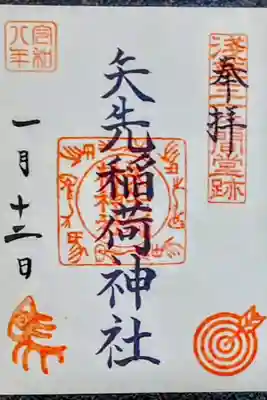 奉拝
浅草三十三間堂跡
矢先稲荷神社
令和
八年
一月十二日